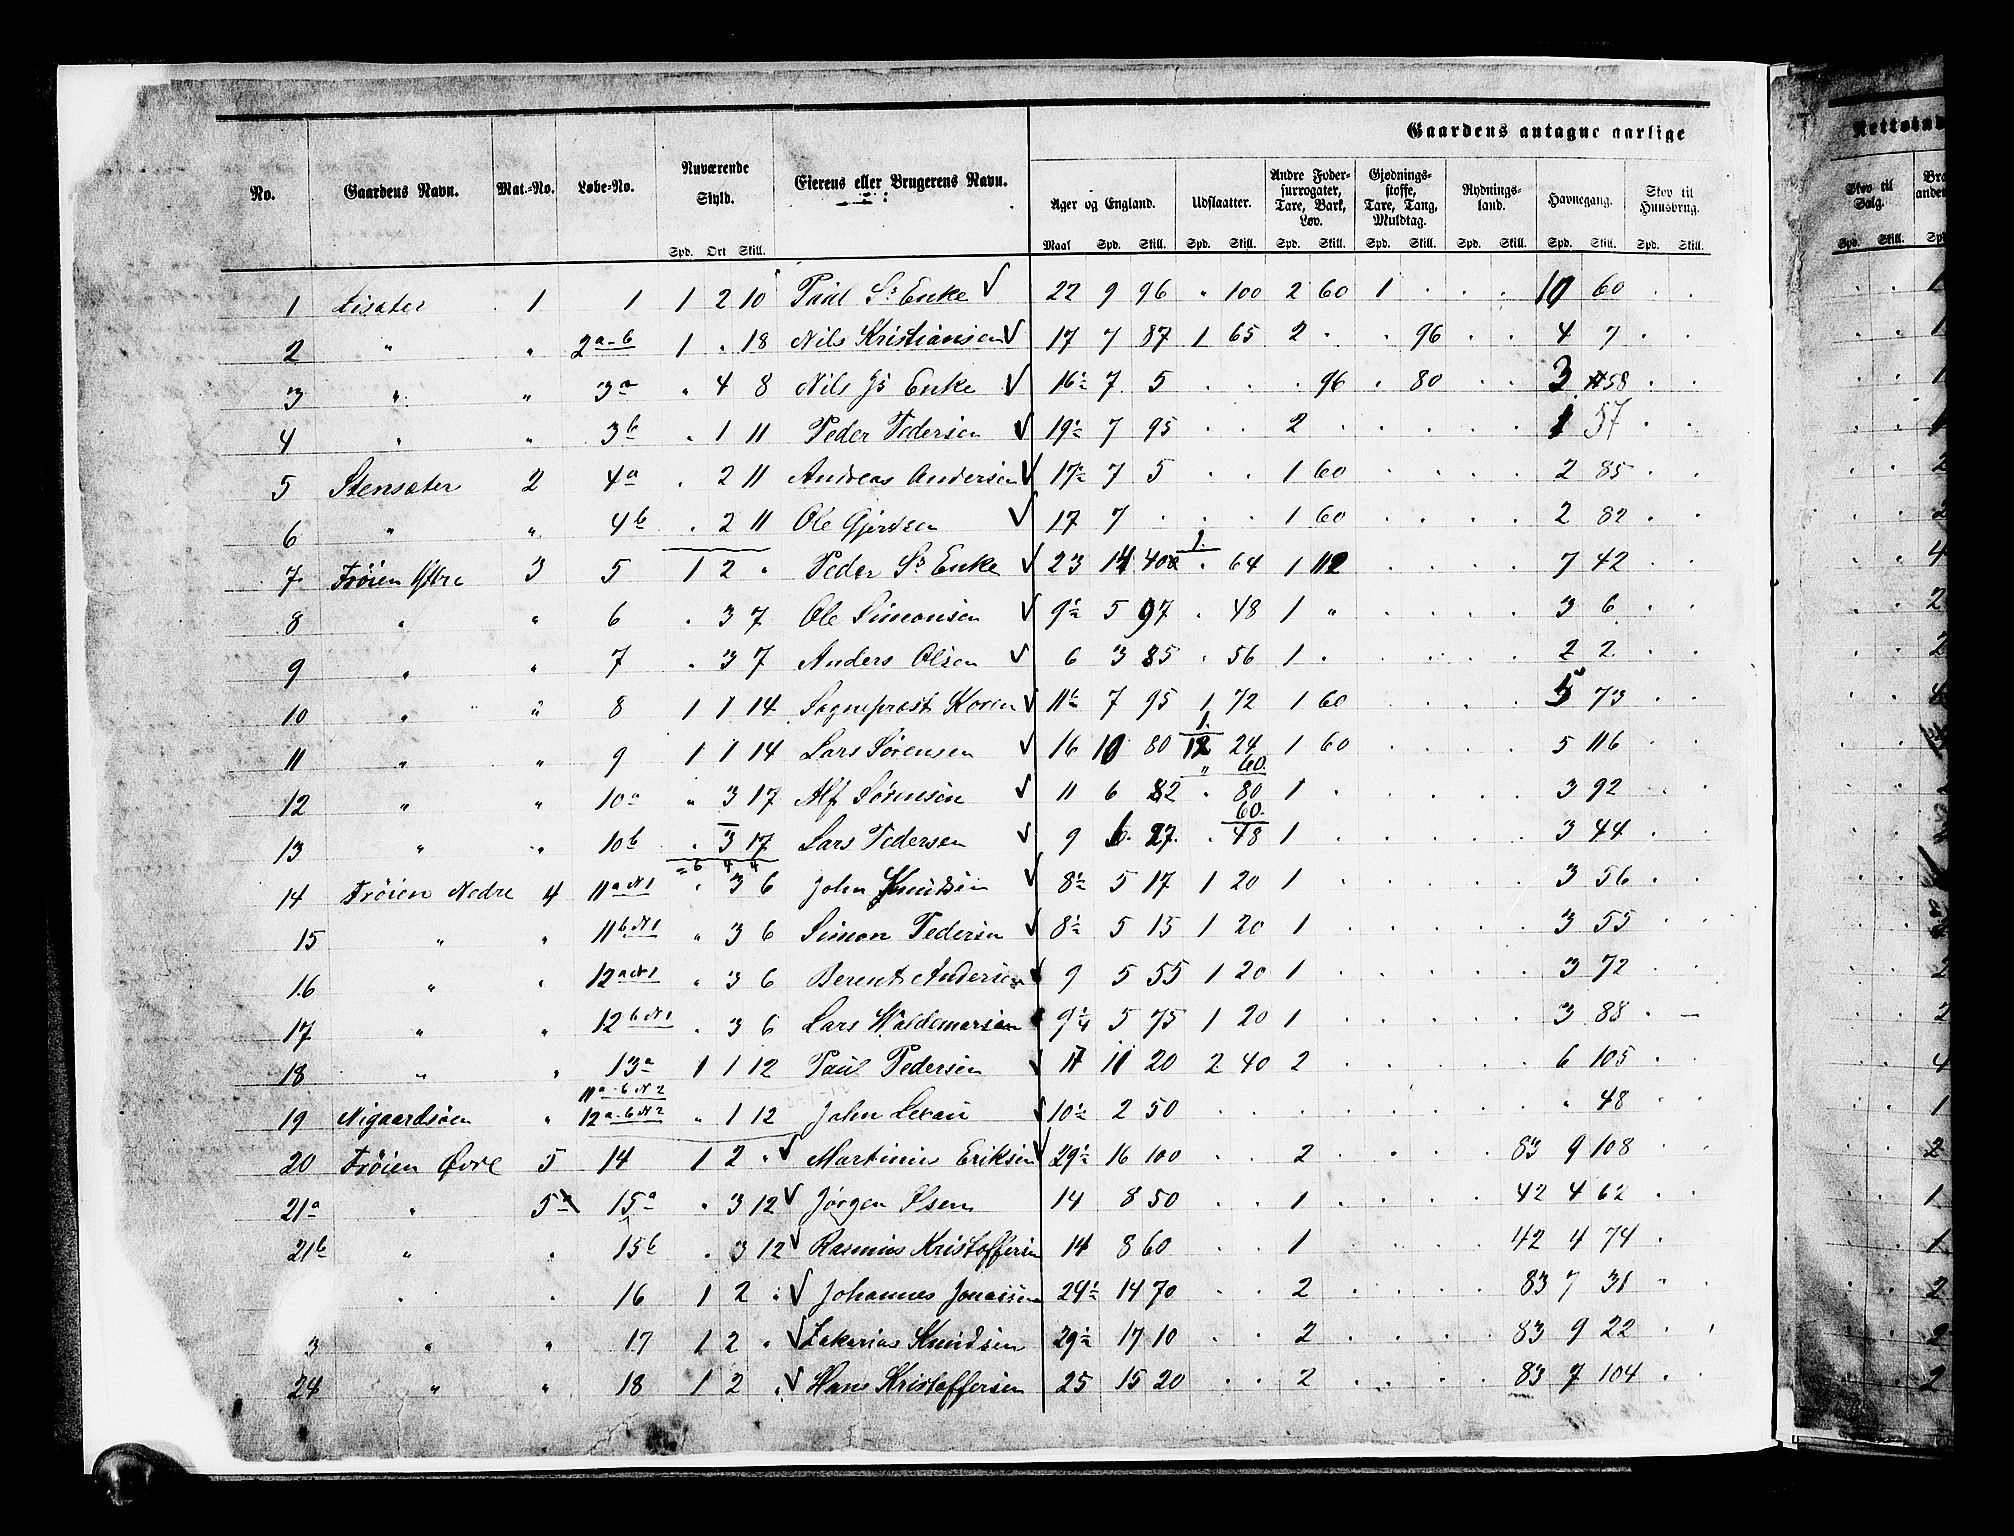 Gaardens antagne aarlige
No. Gaardens Navn. Mat.-No. Løbe-No. Nuværende Skyld. Eierens eller Brugerens Navn. Ager og England. Udslaatter. Andre Foder-surrogater, Tare, Bark, Løv. Gjødnings-stoffe, Tare, Tang, Muldtag. Rydnings-land. Havnegang. Skov til Huusbrug.
Spd. Ort Skill. Maal Spd. Skill. Spd. Skill. Spd. Skill. Spd. Skill. Spd. Skill. Spd. Skill. Spd. Skill.
1 1 1 1 2 10 Paul Ss Enke 22 9 96 " 100 2 60 1 . . . 10 60 . .
2 " " 2 a-b 1 . 18 Nils Kristiansen 17 7 87 1 65 2 . . 96 . . 4 7 . .
3 " " 3a . 4 8 Nils Js Enke 16½ 7 5 . . . 96 . 80 . . 3 58 . .
4 " " 3b . 1 11 Peder Pedersen 19½ 7 95 . . 2 . . . . . 1 57 . .
5 Stensæter 2 4a . 2 11 Andreas Andersen 17½ 7 5 . . 1 60 . . . . 2 85 . .
6 " " 4b . 2 11 Ole Gjertsen 17 7 . . . 1 60 . . . . 2 82 . .
7 Frøien Yttre 3 5 1 2 . Peder Ss Enke 23 14 40 1. 64 1 112 . . . . 7 42 . .
8 " " 6 . 3 7 Ole Simonsen 9½ 5 97 . 48 1 " . . . . 3 6 . .
9 " " 7 . 3 7 Anders Olsen 6 3 85 . 56 1 . . . . . 2 2 . .
10 " " 8 1 1 14 Sogneprest Koren 11½ 7 95 1 72 1 60 . . . . 5 73 . .
11 " " 9 1 1 14 Lars Sørensen 16 10 80 1. 12 24 1 60 . . . . 5 116 . .
12 " " 10a " 3 17 Alf Sørensen 11 6 82 " 60. . 80 1 . . . . . 3 92 . .
13 " " 10b . 3 17 Lars Pedersen 9 6. 27. . 60. 48 1 . . . . . 3 44 . .
= 6 4 4
14 Frøien Nedre 4 11a N1 " 3 6 John Knudsen 8½ 5 17 1 20 1 . . . . . 3 56 . .
15 " " 11b N1 " 3 6 Simon Pedersen 8½ 5 15 1 20 1 . . . . . 3 55 . .
16 " " 12a N1 " 3 6 Berent Andersen 9 5 55 1 20 1 . . . . . 3 72 . .
17 " " 12b N1 . 3 6 Lars Waldemarsen 9¼ 5 75 1 20 1 . . . . . 3 88 . –
18 " " 13a 1 1 12 Paul Pedersen 17 11 20 2 40 2 . . . . . 6 105 . .
11a-b N2
19 Nigaardsøen " 12a-b N2 " 1 12 John 10½ 2 50 . . . . . . . . " 48 . .
20 Frøien Øvre 5 14 1 2 . Martinus Eriksen 29½ 16 100 . . 2 . . . . 83 9 108 . .
21a " 5 15a . 3 12 Jørgen Olsen 14 8 50 . . 1 . . . . 42 4 62 . .
21b " " 15b . 3 12 Rasmus Kristoffersen 14 8 60 . . 1 . . . . 42 4 74 .
" " 16 1 2 . Johannes Jonassen 24½ 14 70 . . 2 . . . . 83 7 31 " .
3 " " 17 1 2 . Zakarias Knudsen 29½ 17 10 . . 2 . . . . 83 9 22 . .
24 " " 18 1 2 . Hans Kristoffersen 25 15 20 . . 2 . . . . 83 7 104 . .
Skov til Salg.
Spd. Skill.